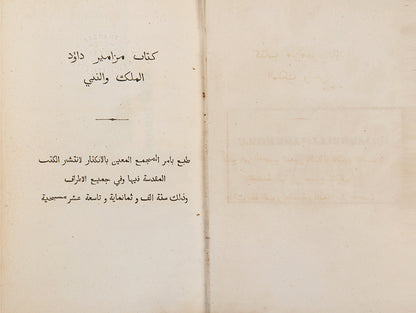 كتاب مزامير داوُد
الملك والنبي
طبع بامر المجمع المعين بالانكلتار لانتشار الكتب
المقدسة فيها وفي جميع الاطراف
وذلك سنة الف و ثمانماية و تاسعة عشر مسيحية